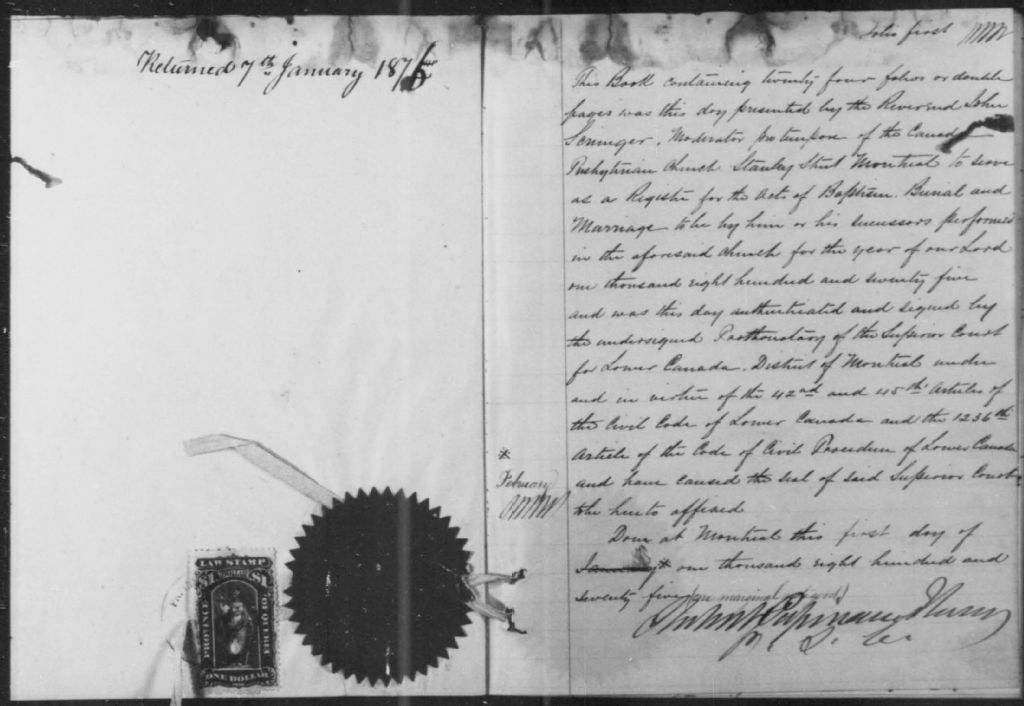 Returned 7th January 1876
LAW STAMP
$1 $1
PROVINCE OF QUEBEC
ONE DOLLAR
folio first
This Book containing twenty four folios or double
pages was this day presented by the Reverend John
Scrimger, Moderator pro tempore of the Canada
Presbyterian Church Stanley Street Montreal to serve
as a Register for the Acts of Baptism, Burial and
Marriage to be by him or his successors performed
in the aforesaid Church for the year of our Lord
one thousand eight hundred and seventy five
and was this day authenticated and signed by
the undersigned Prothonotary of the Superior Court
for Lower Canada, District of Montreal under
and in virtue of the 42nd and 45th Articles of
the Civil Code of Lower Canada and the 1236th
Article of the Code of Civil Procedure of Lower Canada
and have caused the seal of said Superior Court
to be hereto affixed
*
February
Done at Montreal this first day of
January* one thousand eight hundred and
seventy five (one marginal